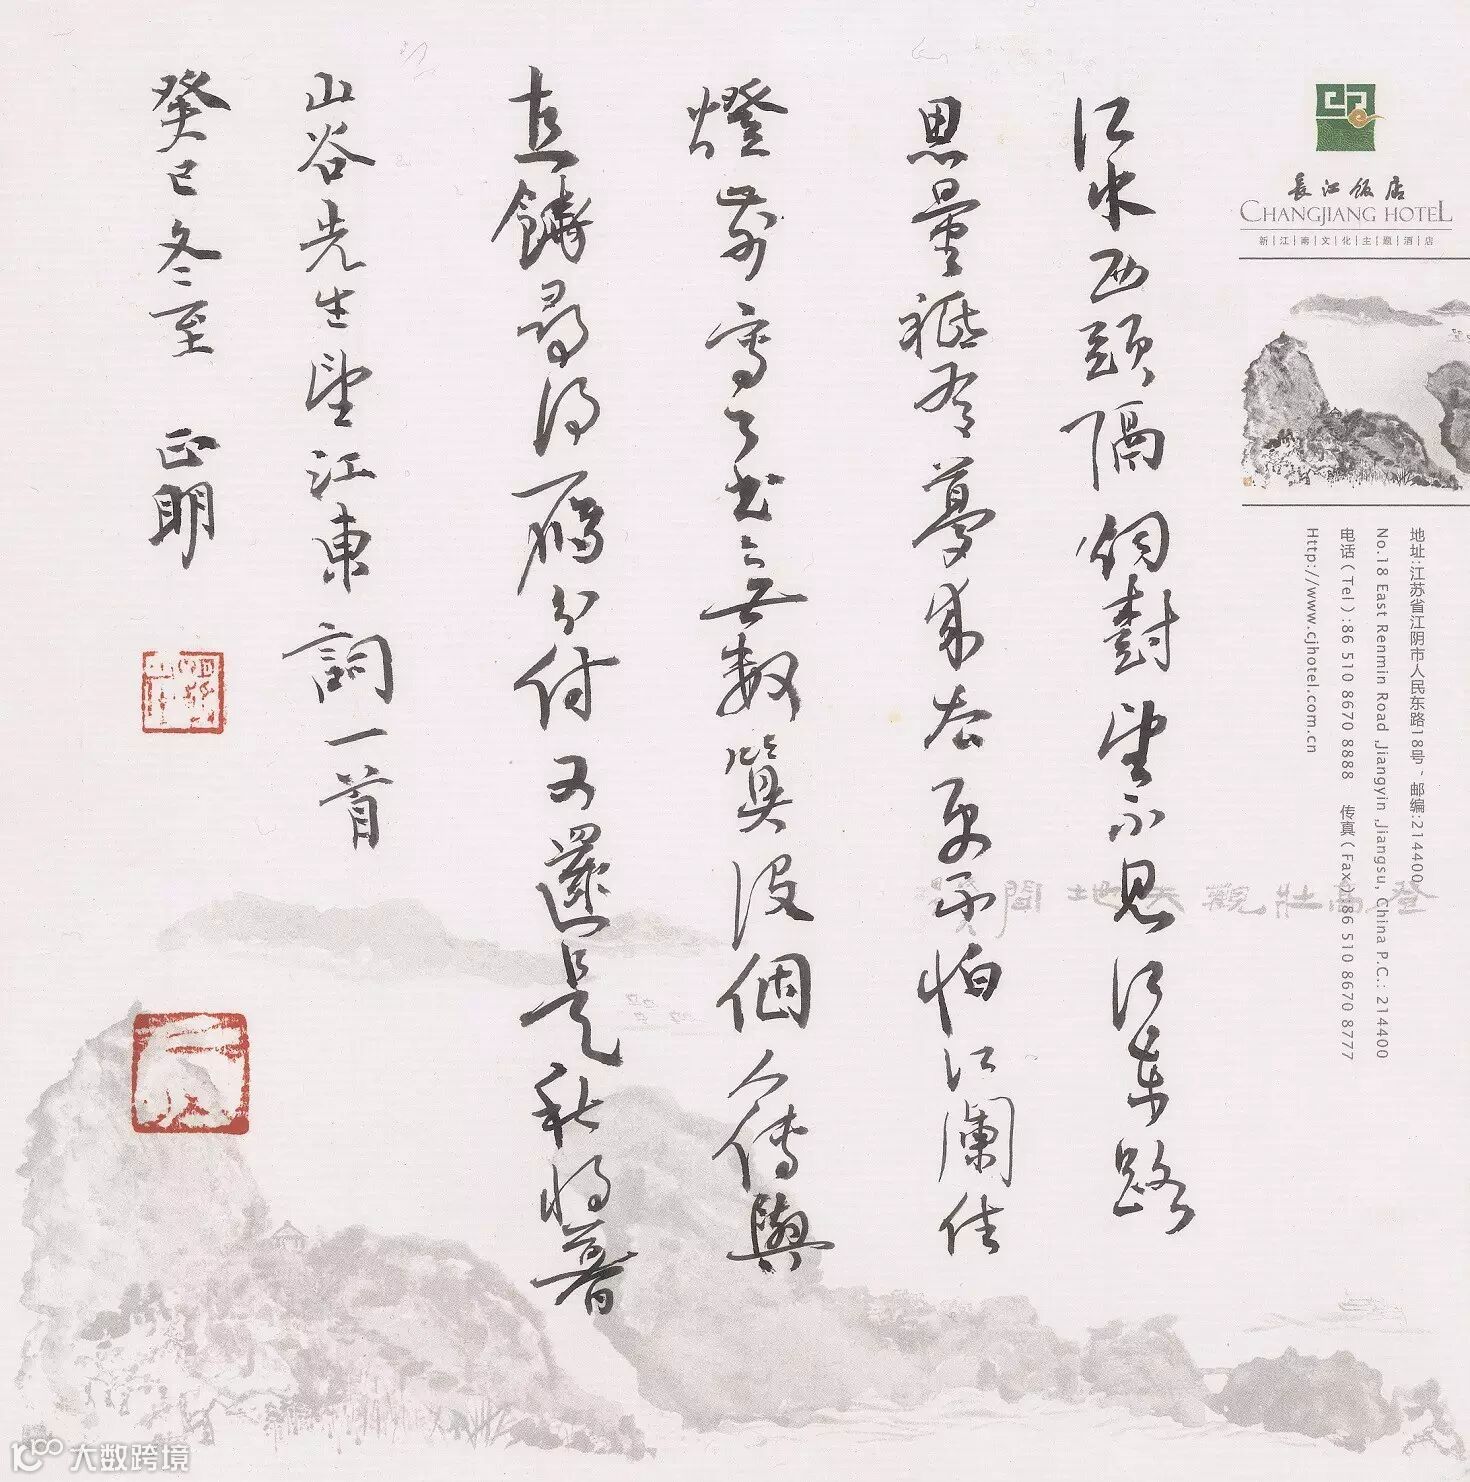 長江飯店
CHANGJIANG HOTEL
新江南文化主题酒店
地址:江苏省江阴市人民东路18号、邮编:214400
No.18 East Renmin Road ,Jiangyin ,Jiangsu, China P.C.: 214400
电话(Tel):86 510 8670 8888 传真(Fax):86 510 8670 8777
Http://www.cjhotel.com.cn
登高壯觀天地間
江水西頭隔烟樹望不見江東路
思量秪有夢來去更不怕江瀾住
燈前寫了書無數算没個人傳與
直饒尋得雁分付又還是秋將暮
山谷先生望江東詞一首
癸巳冬至 正明
大数跨境